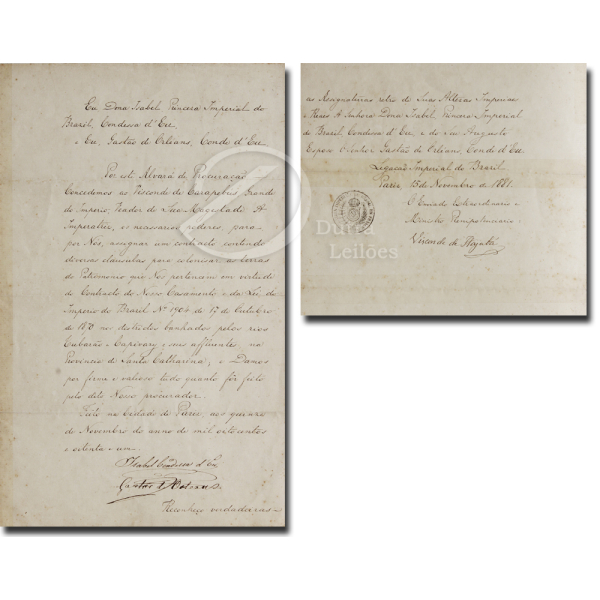 Eu Dona Isabel, Princeza Imperial do
Brazil, Condessa d'Eu,
e Eu, Gastão de Orléans, Conde d'Eu
Por este Alvará de Procuração
Concedemos ao Visconde de Carapebus, Grande
do Imperio, Veador de Sua Magestade A
Imperatriz, os necessarios poderes, para
por Nós, assignar um contracto contendo
diversas clausulas para colonisar as terras
do Patrimonio que Nos pertencem em virtude
do Contracto do Nosso Casamento e da Lei do
Imperio do Brazil Nº 1904 de 17 de Outubro
de 1870 nos districtos banhados pelos rios
Tubarão e Capivary e seus affluentes na
Provincia de Santa Catharina; e Damos
por firme e valioso tudo quanto fôr feito
pelo dito Nosso procurador.
Feito na Cidade de Pariz, aos quinze
de Novembro do anno de mil oitocentos
e oitenta e um.
Isabel Condessa d'Eu
Gastão d'Orleans
Reconheço verdadeiras
as Assignaturas retro de Suas Altezas Imperiaes
A Senhora Dona Isabel, Princeza Imperial
do Brazil, Condessa d'Eu, e do Seu Augusto
Esposo O Senhor Gastão de Orléans, Conde d'Eu
Legação Imperial do Brazil
Pariz, 15 de Novembro de 1881.
O Enviado Extraordinario e
Ministro Plenipotenciario
Visconde de Itajubá
Leilões